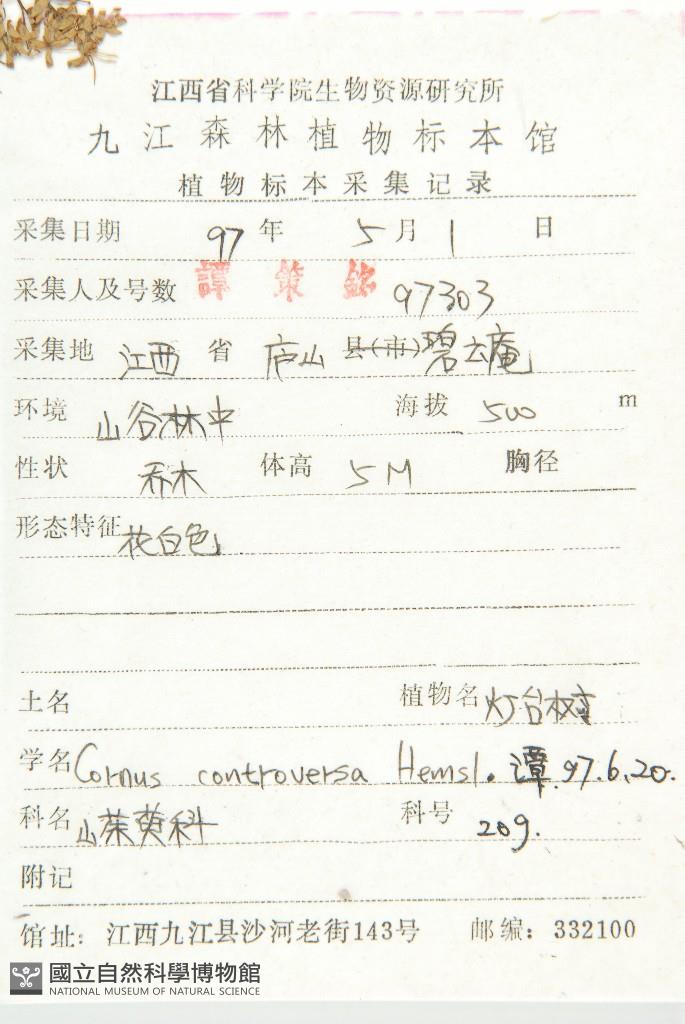 江西省科学院生物资源研究所
九江森林植物标本馆
植物标本采集记录
采集日期 97 年 5 月 1 日
采集人及号数 譚策銘 97303
采集地 江西 省 庐山 县(市) 碧云庵
环境 山谷林中 海拔 500 m
性状 乔木 体高 5M 胸径
形态特征 花白色
土名 植物名 灯台树
学名 Cornus controversa Hemsl. 谭.97.6.20.
科名 山茱萸科 科号 209.
附记
馆址: 江西九江县沙河老街143号 邮编: 332100
國立自然科學博物館
NATIONAL MUSEUM OF NATURAL SCIENCE